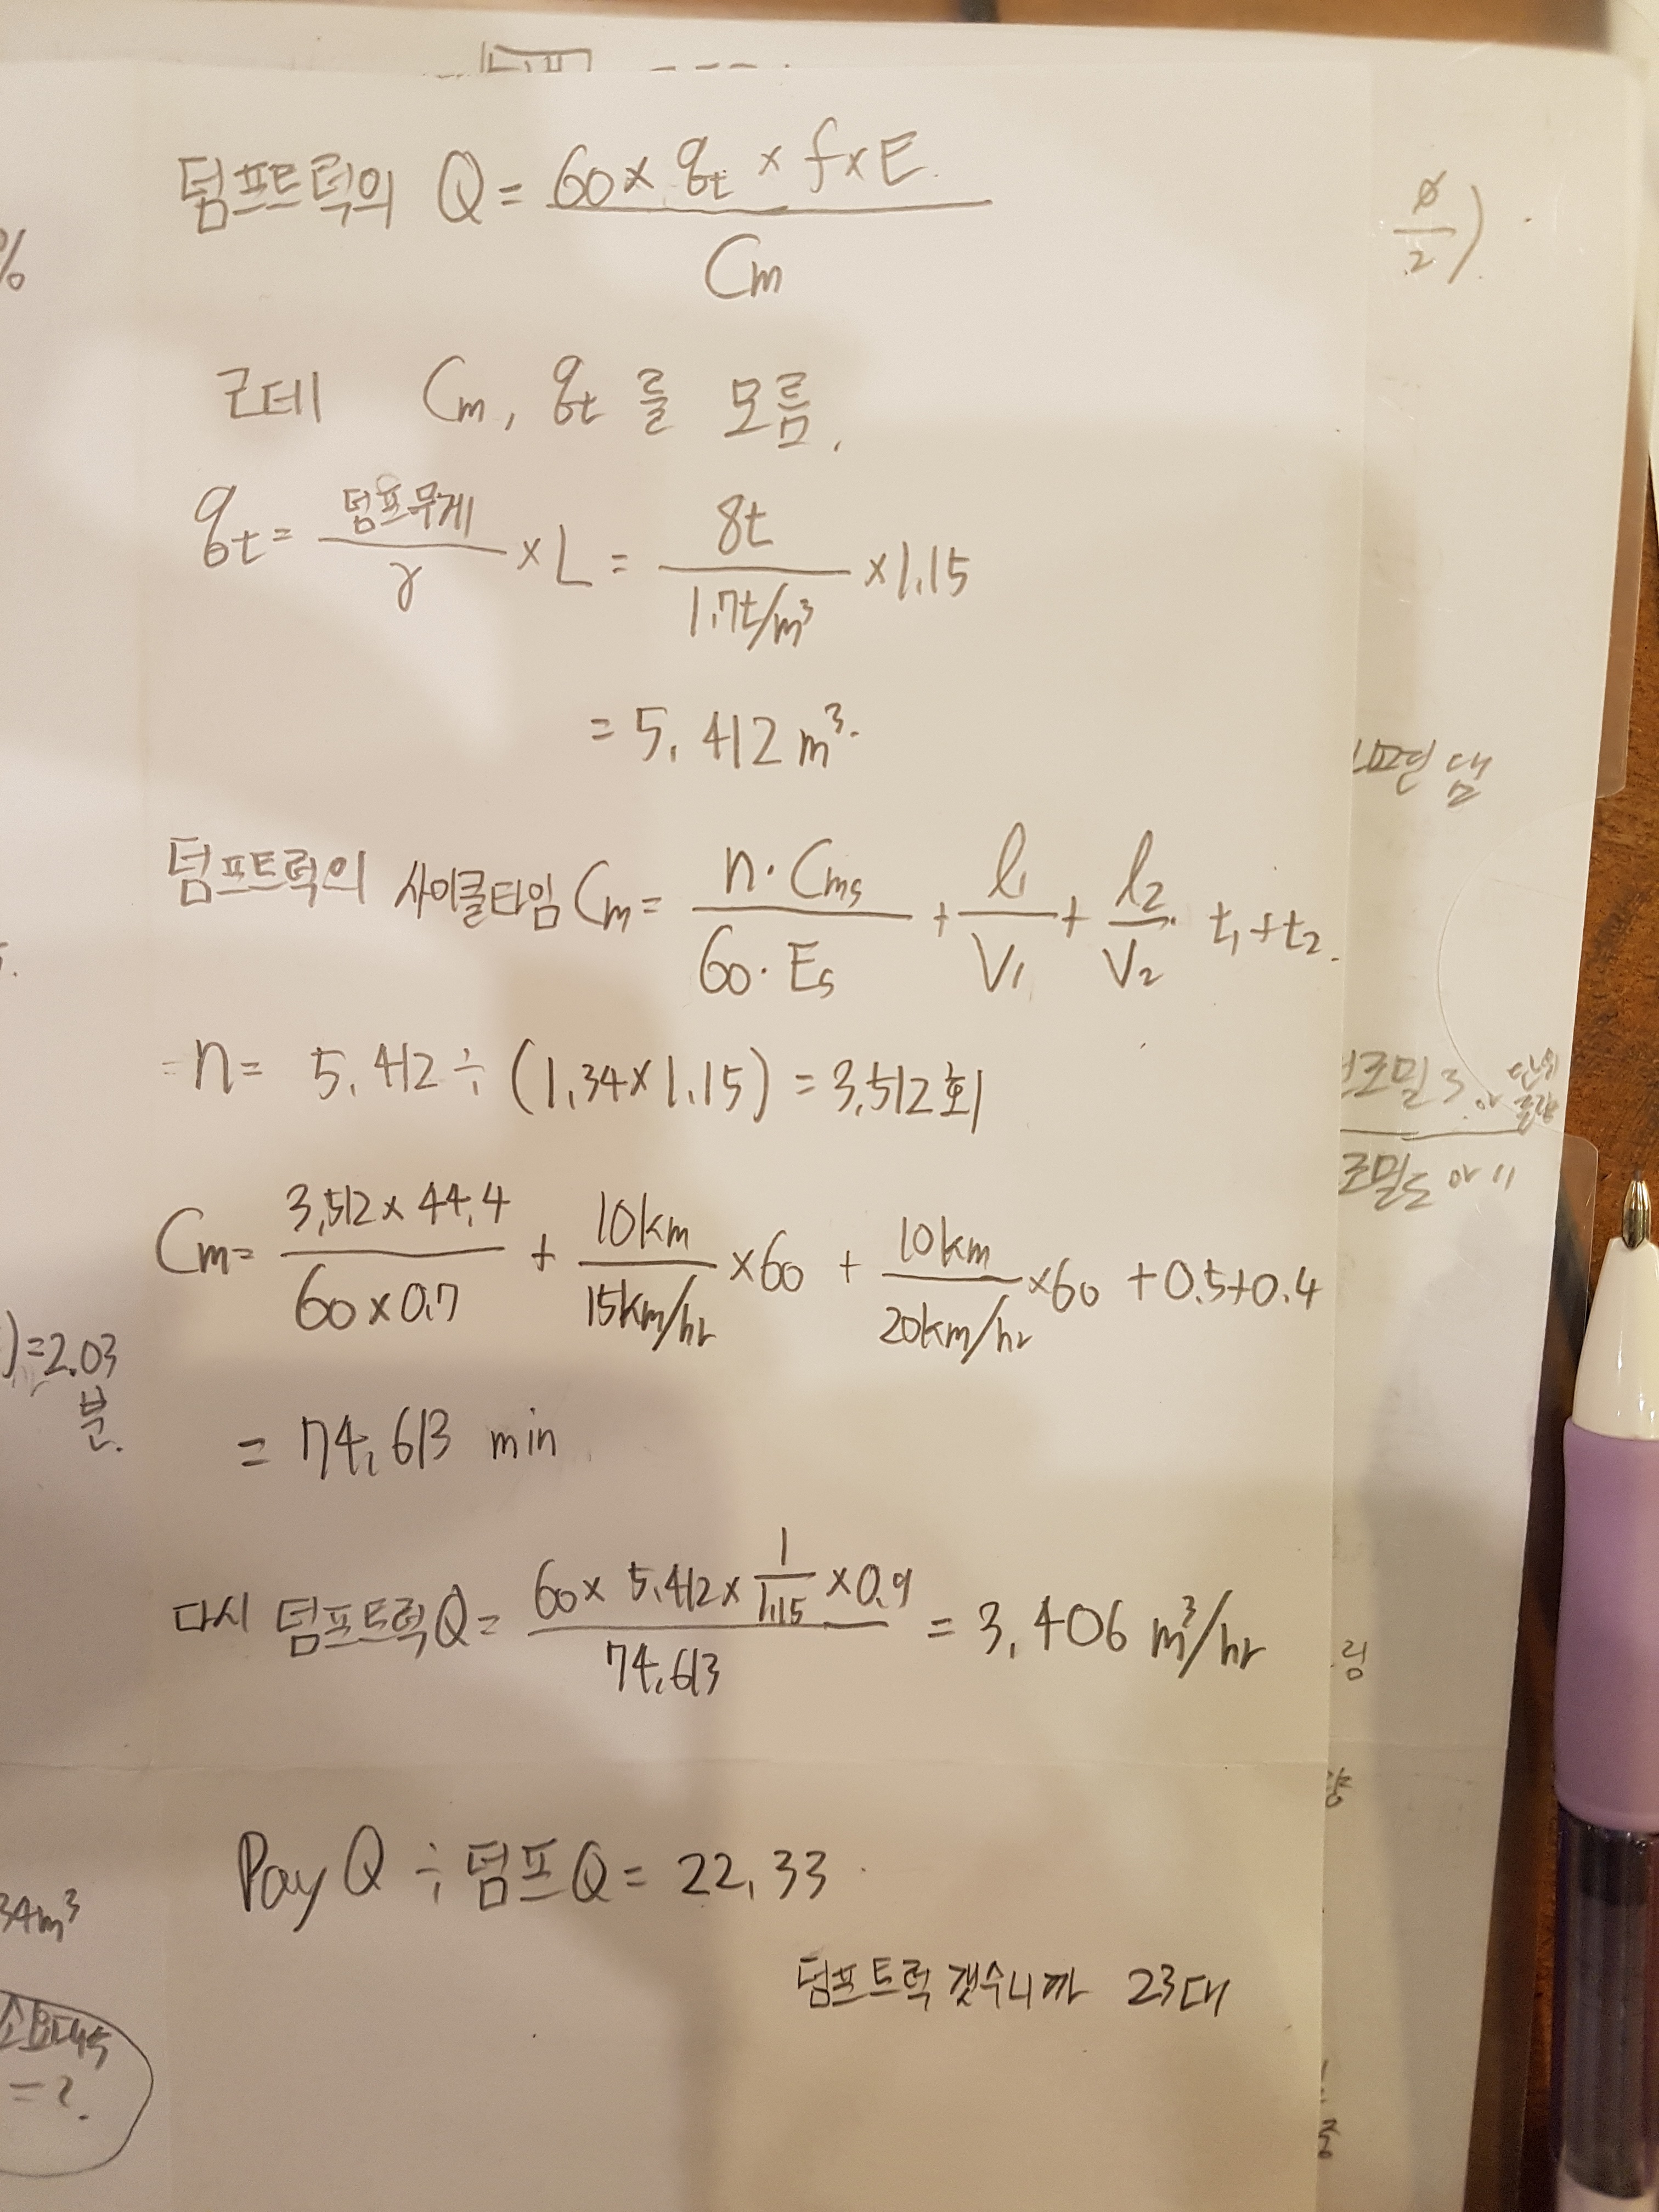 덤프트럭의 Q = 60 x qt x f x E / Cm
근데 Cm, qt 를 모름.
qt = 덤프무게 / γ x L = 8t / 1.7t/m³ x 1.15
= 5.412 m³.
덤프트럭의 사이클타임 Cm = n · Cms / 60 · Es + l1 / V1 + l2 / V2 · t1 + t2.
= n = 5.412 ÷ (1.34 x 1.15) = 3.512 회
Cm = 3.512 x 44.4 / 60 x 0.7 + 10km / 15km/hr x 60 + 10km / 20km/hr x 60 + 0.5 + 0.4
= 74.613 min
다시 덤프트럭 Q = 60 x 5.412 x 1/1.15 x 0.9 / 74.613 = 3.406 m³/hr
Pay Q ÷ 덤프 Q = 22.33
덤프트럭 갯수니까 23대
%
) = 2.03
분.
34m³
소요대수
= ?
ø / 2 ).
면 댐
조밀
조밀도